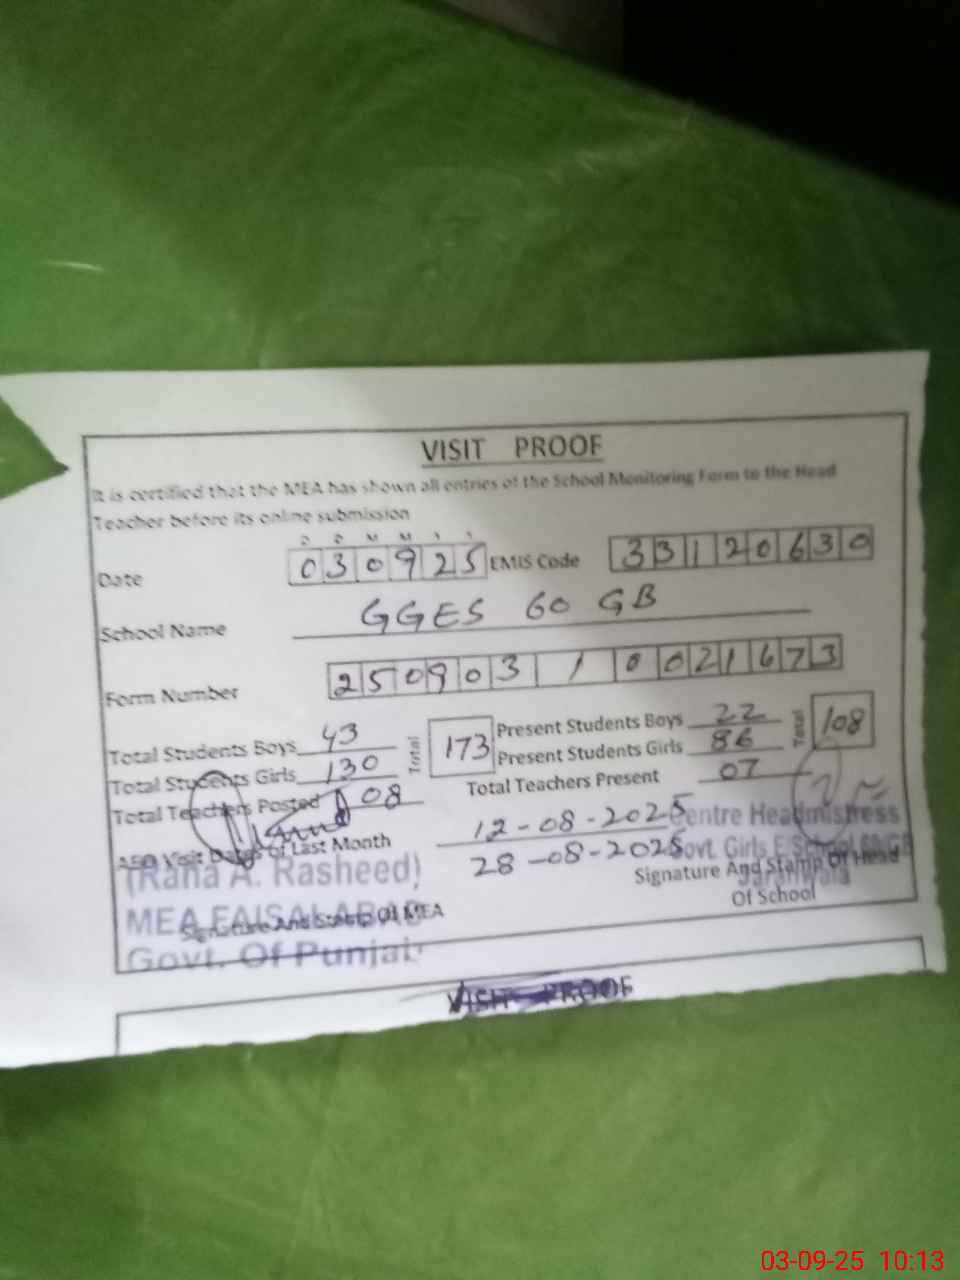 VISIT PROOF
It is certified that the MEA has shown all entries of the School Monitoring Form to the Head
Teacher before its online submission
D D M M Y Y
Date 030925 EMIS Code 33120630
School Name GGES 60 GB
Form Number 250903 1 0021673
Total Students Boys 43 Total 173 Present Students Boys 22 Total 108
Total Students Girls 130 Present Students Girls 86
Total Teachers Posted 08 Total Teachers Present 07
AEO Visit Dates of Last Month 12-08-2025
28-08-2025
Centre Headmistress
Govt. Girls E/School 60/GB
Jaranwala
Signature And Stamp Of Head
Of School
(Rana A. Rasheed)
MEA FAISALABAD
Signature And Stamp Of MEA
Govt. Of Punjab
VISIT PROOF
03-09-25 10:13